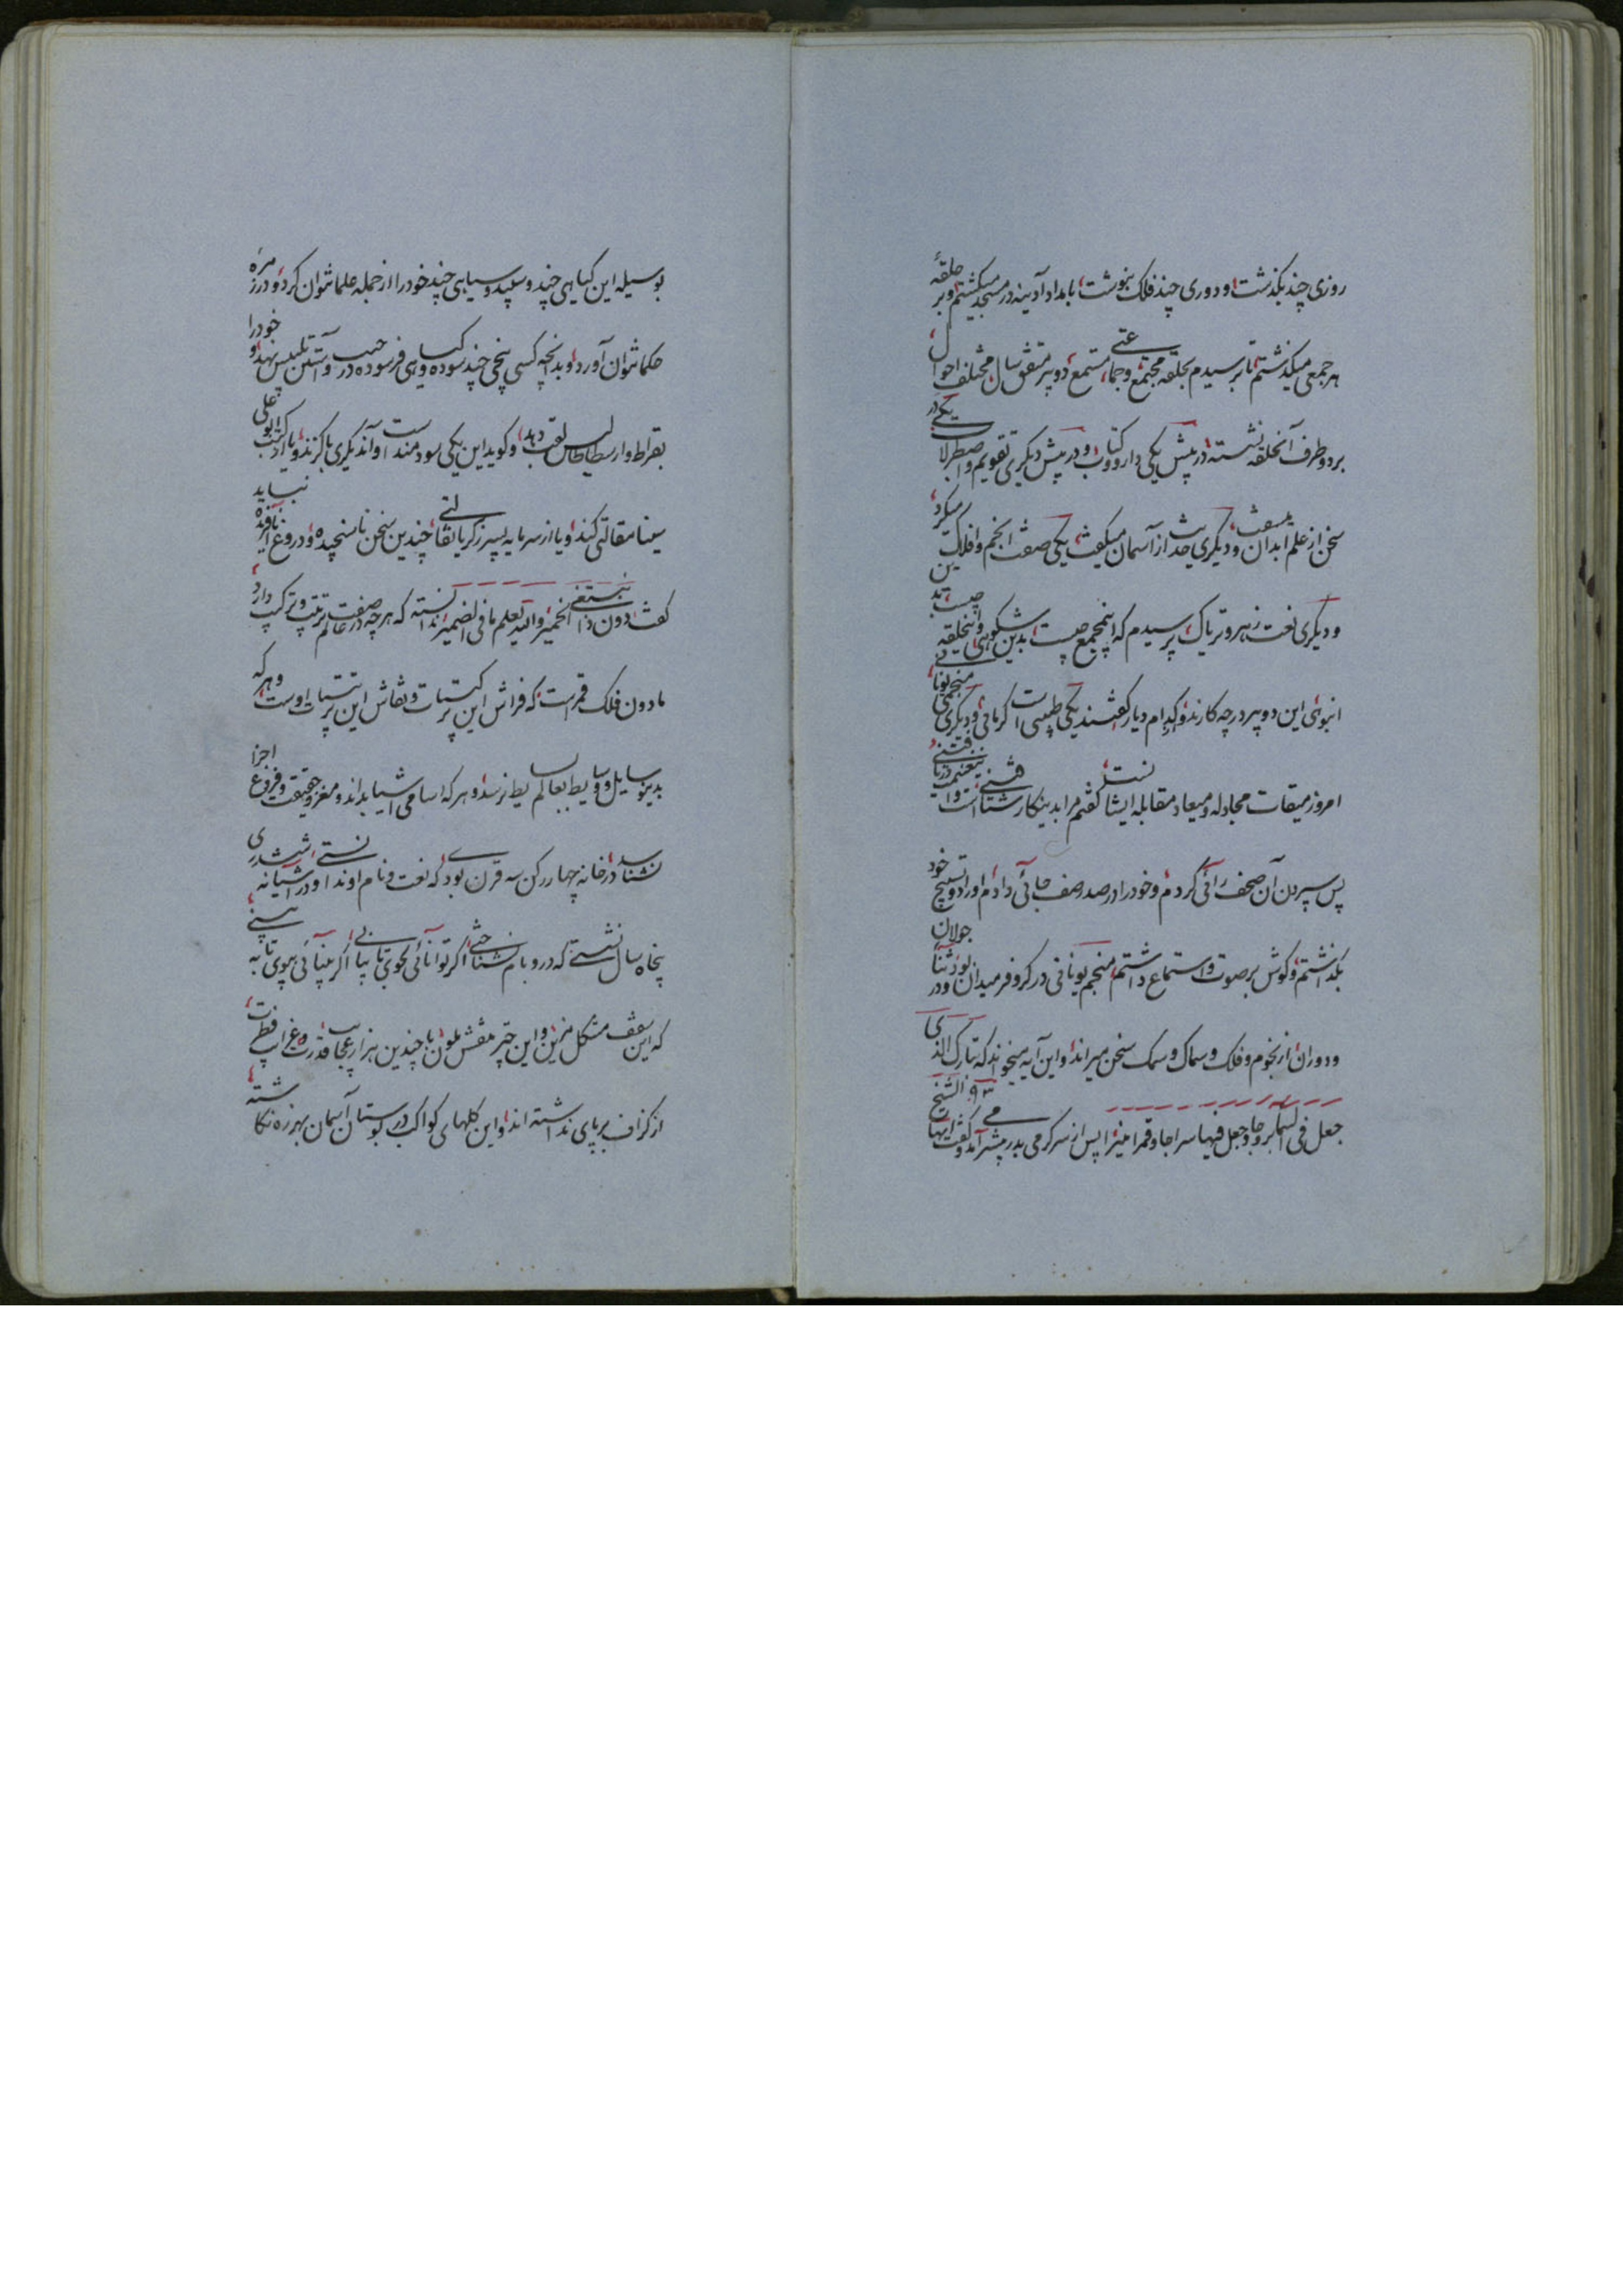 روزی چند بگذشت و دوری چند فلک بنوشت بامداد آدینه در مسجد میگشتم و بر حلقهٔ
هر جمعی میگذشتم تا برسیدم بحلقه مجتمع و جماعتی مستمع دو پیر متفق سال مختلف احوال
بر دو طرف آنحلقه نشسته در پیش یکی دارو و کتاب و در پیش دیگری تقویم و اصطرلاب یکی در
سخن از علم ابدان میسفت و دیگری حدیث از آسمان میگفت یکی صفت انجم و افلاک میکرد
و دیگری نعت زهر و تریاک پرسیدم که اینمجمع چیست بدین شکوهی و اینحلقه چیست بدین
انبوهی این دو پیر در چه کارند و کدام دیار گفتند یکی طبیبی است کرمانی و دیگری منجمی یونانی
امروز میقات مجادله و میعاد مقابله ایشانست گفتم مرا بدینکار شتافتنی است و این غنیمت دریافتنی
پس سپردن آن صحف رائی کردم و خود را در صدر صف جائی دادم اوراد و تسبیح خود
بگذاشتم و گوش بر صوت و استماع داشتم منجم یونانی در کر و فر میدان بود و در اثنا جولان
و دوران از نجوم و فلک و سماک و سمک سخن میراند و این آیه میخواند که تبارک الذی
جعل فی السماء بروجا و جعل فیها سراجا و قمرا منیرا پس از سر گرمی بدر مشرآمد و گفت ایها الشیخ
بوسیله این گیاهی چند و سپید و سیاهی چند خود را از جمله علما نتوان کرد و در زمره
حکما نتوان آورد و بدانچه کسی بیخی چند سوده و گیاهی فرسوده در جیب و آستین تلبیس نهد و خود را
بقراط و ارسطاطالیس لقب دهد و گوید این یکی سودمند است و آن دیگری با گزند و یا از کتب ابو علی
سینا مقالتی کند و یا از سرمایه پسر زکریا نقالتی چندین سخن ناسنجیده و دروغ نافریده نباید
گفت دون ذا نستغنی الخمیر والله یعلم ما فی الضمیر ندانسته که هر چه در عالم صفت ترتیب و ترکیب دارد
مادون فلک قمرست که فراش این ترکیبات و نقاش این ترتیبات اوست و هر که
بدین وسایل و وسایط بعالم بسایط نرسد و هر که اسامی اشیا بداند و مغز و حقیقت و فروع اجزا
نشناسد در خانه چهار رکن سه قرن بودی که نعت و نام او ندانستی و در آشیانه ششدری
پنجاه سال نشستی که در و بام نشناختی اگر توانائی بجوی تا بیابی اگر بینائی بپوی تا به بینی
که این سقف مشکل مزین و این چتر منقش ملون با چندین هزار عجایب قدرت و غرایب فطرت
از گزاف بر پای نداشته اند و این گلهای کواکب در بوستان آسمان بهرزه نگاشته